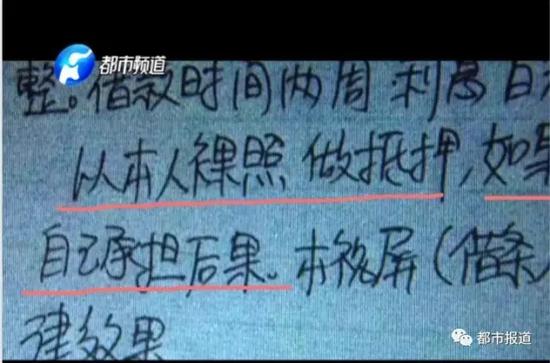 都市频道
整。借款时间两周 利息日
从本人裸照 做抵押,如果
自己承担后果。本视屏(借条
律效果
都市报道